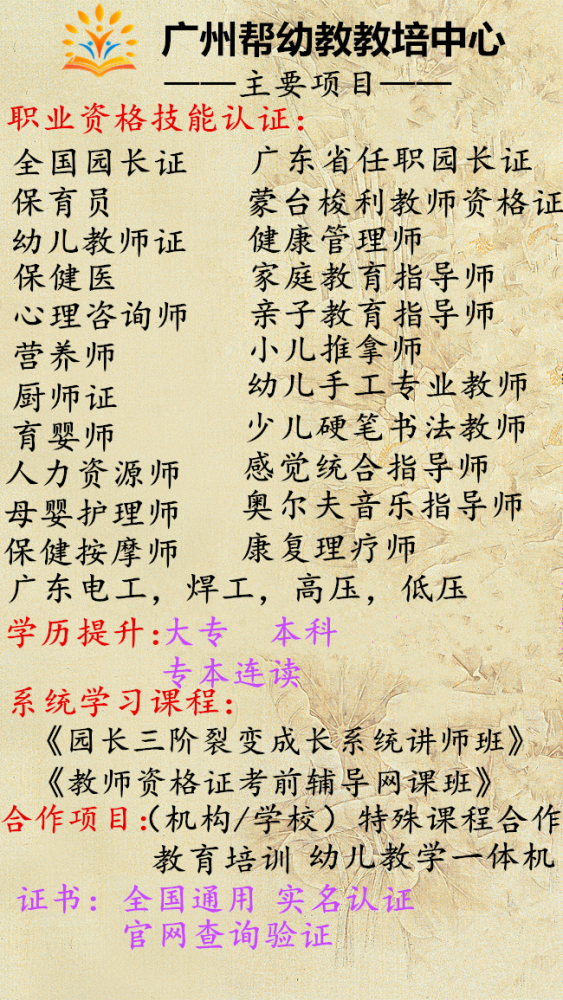 广州帮幼教教培中心
——主要项目——
职业资格技能认证：
全国园长证 广东省任职园长证
保育员 蒙台梭利教师资格证
幼儿教师证 健康管理师
保健医 家庭教育指导师
心理咨询师 亲子教育指导师
营养师 小儿推拿师
厨师证 幼儿手工专业教师
育婴师 少儿硬笔书法教师
人力资源师 感觉统合指导师
母婴护理师 奥尔夫音乐指导师
保健按摩师 康复理疗师
广东电工，焊工，高压，低压
学历提升：大专 本科
专本连读
系统学习课程：
《园长三阶裂变成长系统讲师班》
《教师资格证考前辅导网课班》
合作项目：（机构/学校）特殊课程合作
教育培训 幼儿教学一体机
证书：全国通用 实名认证
官网查询验证